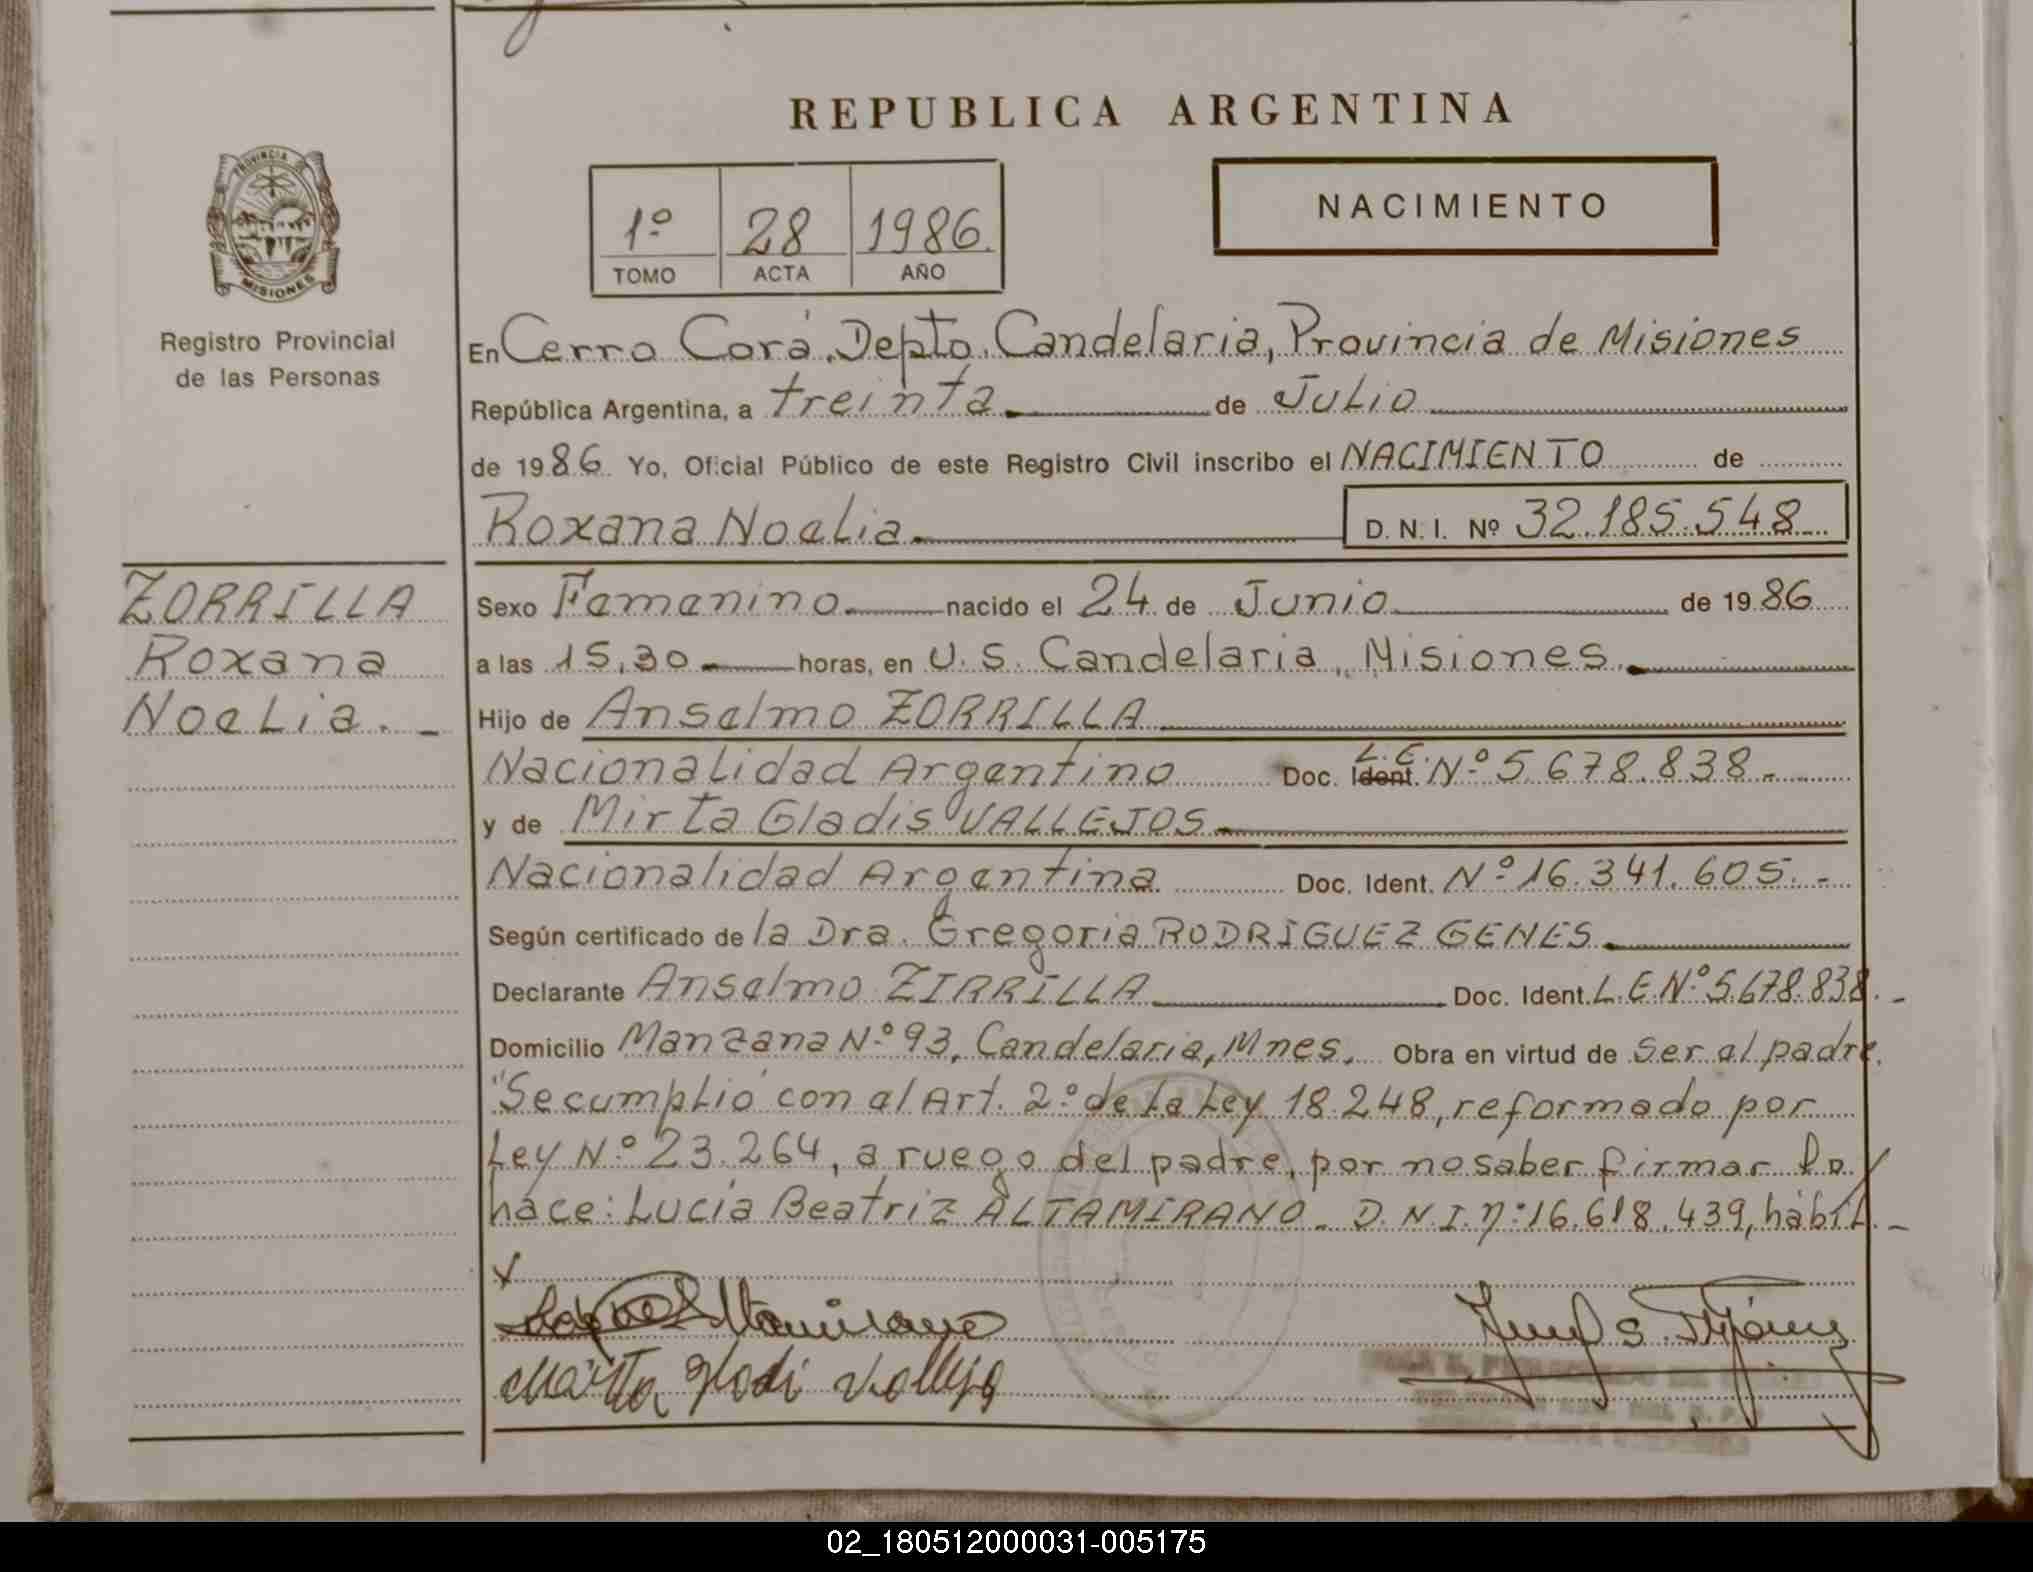 REPUBLICA ARGENTINA
PROVINCIA DE
MISIONES
Registro Provincial
de las Personas
1º 28 1986.
TOMO ACTA AÑO
NACIMIENTO
En Cerro Corá, Depto. Candelaria, Provincia de Misiones
República Argentina, a treinta de Julio
de 1986. Yo, Oficial Público de este Registro Civil inscribo el NACIMIENTO de
Roxana Noelia. D. N. I. Nº 32.185.548
ZORRILLA
Roxana
Noelia. -
Sexo Femenino nacido el 24 de Junio de 1986
a las 15,30 horas, en U. S. Candelaria, Misiones.
Hijo de Anselmo ZORRILLA
Nacionalidad Argentino Doc. Ident. L.E. Nº 5.678.838.-
y de Mirta Gladis VALLEJOS
Nacionalidad Argentina. Doc. Ident. Nº 16.341.605.-
Según certificado de la Dra. Gregoria RODRIGUEZ GENES
Declarante Anselmo ZIRRILLA Doc. Ident. L.E. Nº 5.678.838.-
Domicilio Manzana Nº 93, Candelaria, Mnes. Obra en virtud de ser el padre.
"Se cumplió con el Art. 2º de la Ley 18.248, reformado por
Ley Nº 23.264, a ruego del padre, por no saber firmar lo
hace: Lucía Beatriz ALTAMIRANO - D.N.I. nº 16.618.439, hábil.-
02_180512000031-005175